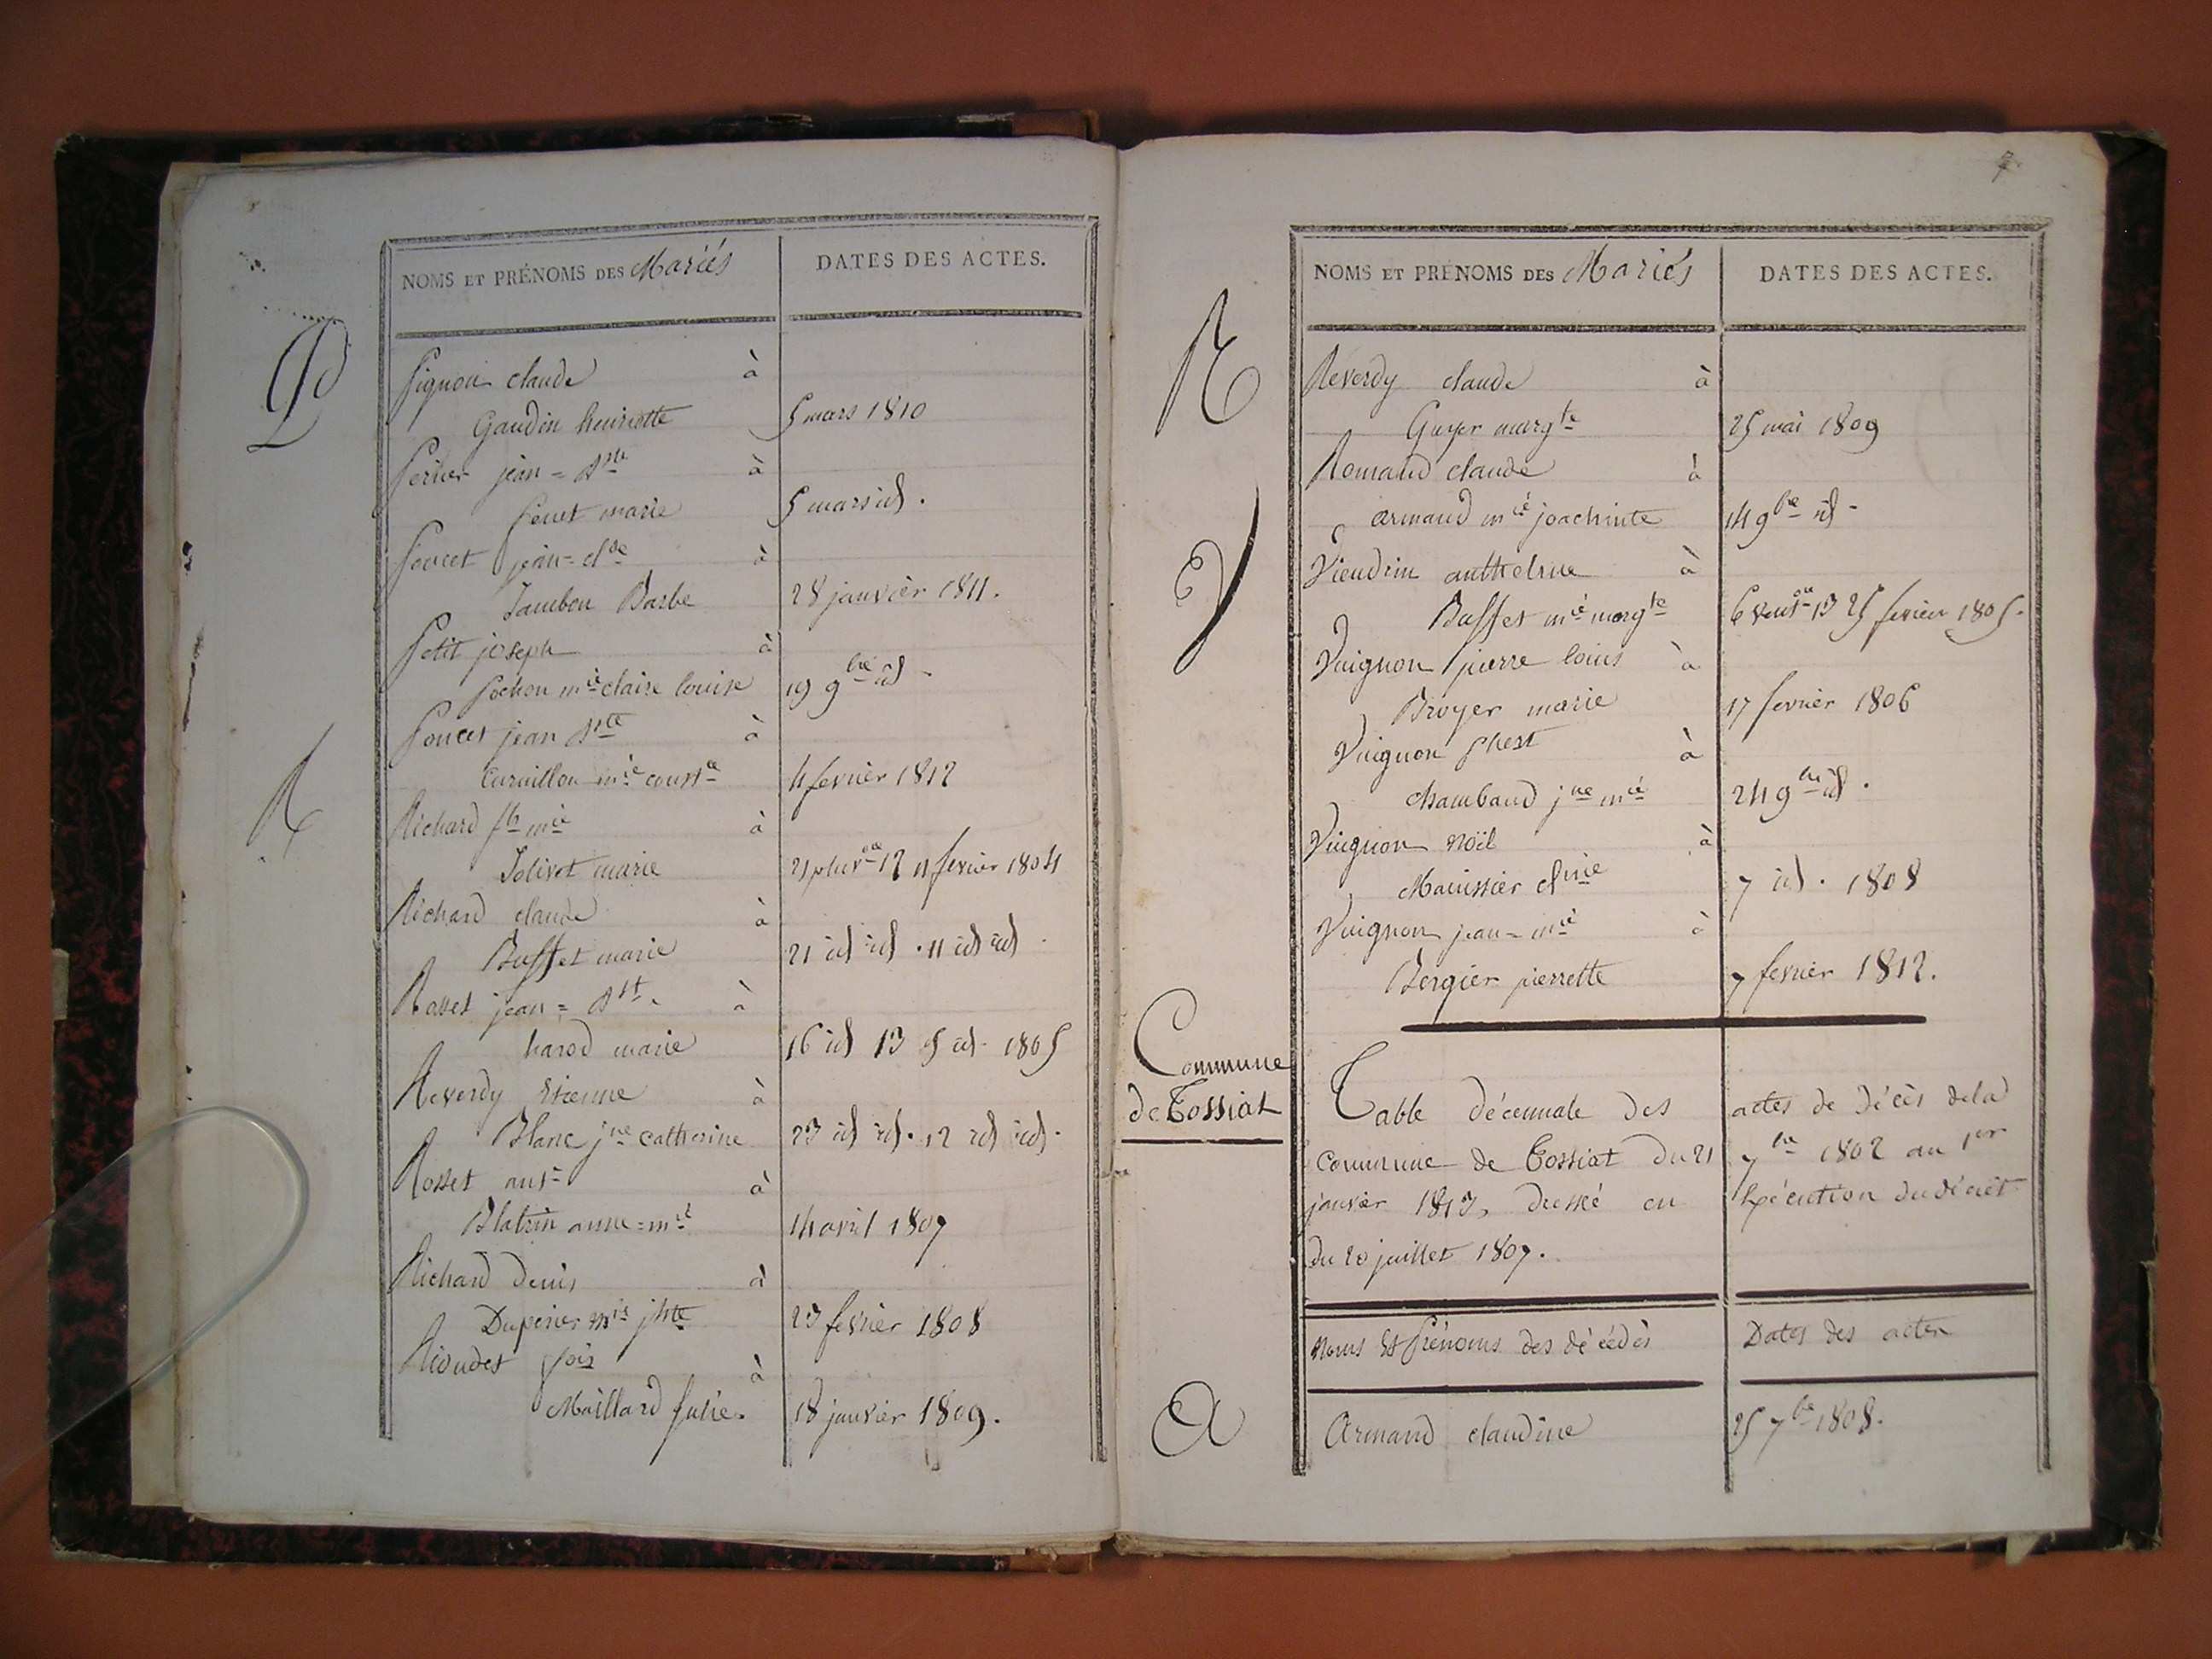 NOMS ET PRÉNOMS DES Mariés
DATES DES ACTES.
P
Pignon claude à
Gaudin henriette 5 mars 1810
Perrier jean = Bte à
Penet marie 5 mars id.
Poncet jean = Cde à
Jambon Barbe 28 janvier 1811.
Petit joseph à
Pochon mie claire louise 19 9bre id.
Poncet jean Bte à
mie 4 fevrier 1812
R
Richard mie à
Jolivet marie 21 pluvose 12 11 fevrier 1804
Richard claude à
Buffet marie 21 id id. 11 id id.
Rosset jean = Bst. à
harod marie 16 id 13 5 id. 1805
Reverdy Etienne à
Blanc jne catherine 23 id id. 12 id id.
Rosset ant. à
Blatrin anne = mie 14 avril 1807
Richard denis à
Duperier mie 23 fevrier 1808
Rioudet fois à
Maillard julie. 18 janvier 1809.
7
NOMS ET PRÉNOMS DES Mariés
DATES DES ACTES.
R
Reverdy claude à
Guyer margte 25 mai 1809
Romand claude à
armand mie joachinte 14 9bre id.
V
Vieudrin anthelme à
Buffet mie margte 6 ventose 13 25 fevrier 1805.
Vuignon pierre louis à
Broyer marie 17 fevrier 1806
Vuignon à
Chambaud jne mie 24 9bre id.
Vuignon Noël à
Maiussier 7 id. 1808
Vuignon jean = mie à
Bergier pierrette 7 fevrier 1812.
Commune
de Tossiat
Table décennale des actes de décès de la
commune de Tossiat du 21 7bre 1802 au 1er
janvier 1813, dressé en Execution du décret
du 20 juillet 1807.
Noms Et Prénoms des décédés
Dates des actes
A
Armand claudine 25 7bre 1808.